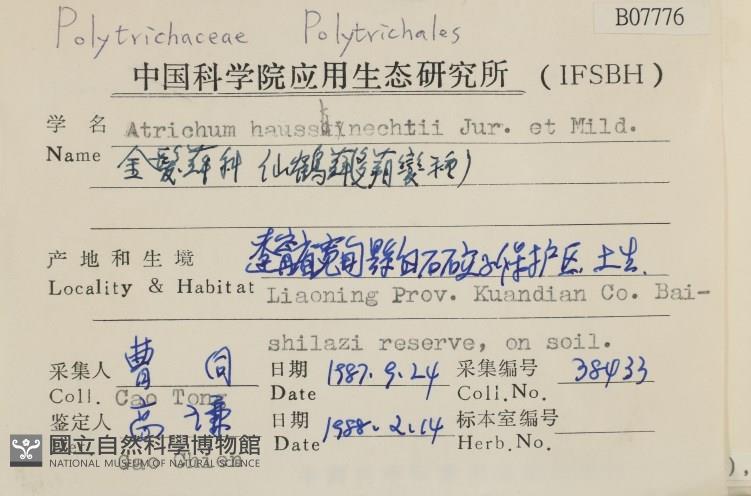 B07776
Polytrichaceae Polytrichales
中国科学院应用生态研究所 (IFSBH)
学名 Atrichum hausshinechtii Jur. et Mild.
Name 金髮蘚科 仙鶴蘚變種
产地和生境 遼寧省寬甸縣白石砬子保护区 土生.
Locality & Habitat Liaoning Prov. Kuandian Co. Bai-
shilazi reserve, on soil.
采集人 曹同 日期 1987.9.24 采集编号 38433
Coll. Cao Tong Date Coll.No.
鉴定人 高谦 日期 1988.2.14 标本室编号
Gao Chien Date Herb.No.
國立自然科學博物館
NATIONAL MUSEUM OF NATURAL SCIENCE